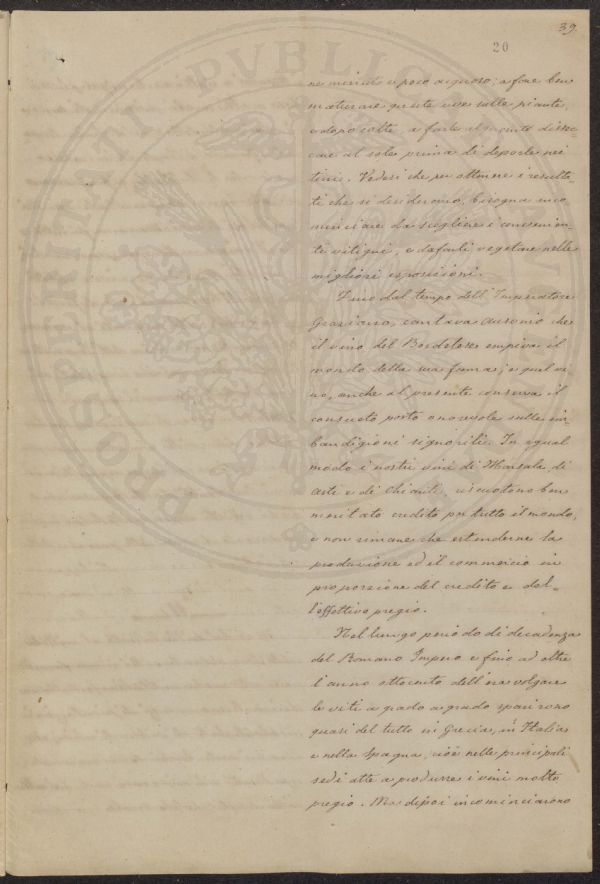 39.
20
ne minuto e poco acquoso; a fare ben
maturare queste uve sulle piante,
e dopo colte, a farle alquanto disse-
care al sole prima di deporle nei
tini. Vedesi che per ottenere i resulta-
ti che si desiderano, bisogna inco
minciare da scegliere i convenien-
ti vitigni, e da farli vegetare nelle
migliori esposizioni.
Fino dal tempo dell'Imperatore
Graziano, cantava Ausonio che
il vino del Bordelese empiva il
mondo della sua fama; e quel vi
no, anche al presente conserva il
consueto posto onorevole sulle im-
bandigioni signorili. In egual
modo i nostri vini di Marsala, di
Asti e di Chianti, riscuotono ben
meritato credito per tutto il mondo,
e non rimane che estenderne la
produzione ed il commercio in
proporzione del credito e del-
l'effettivo pregio.
Nel lungo periodo di decadenza
del Romano Impero e fino ad oltre
l'anno ottocento dell'era volgare
le viti a grado a grado sparirono
quasi del tutto in Grecia, in Italia
e nella Spagna, cioè nelle principali
sedi atte a produrre i vini molto
pregio. Ma dipoi incominciarono
PROSPERITATI PUBLICAE